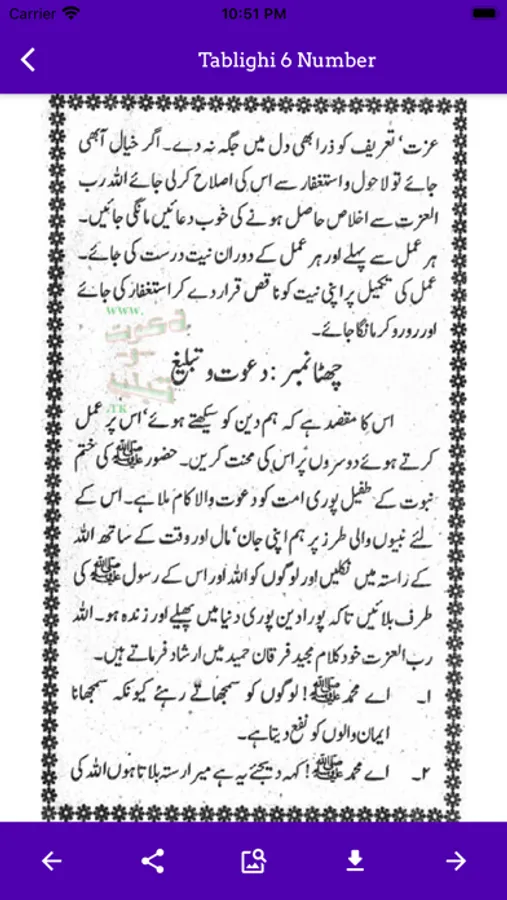 Carrier 10:51 PM
Tablighi 6 Number
عزت‘ تعریف کو ذرا بھی دل میں جگہ نہ دے۔ اگر خیال آبھی
جائے تو لاحول و استغفار سے اس کی اصلاح کر لی جائے اللہ رب
العزت سے اخلاص حاصل ہونے کی خوب دعائیں مانگی جائیں۔
ہر عمل سے پہلے اور ہر عمل کے دوران نیت درست کی جائے۔
عمل کی تکمیل پر اپنی نیت کو ناقص قرار دے کر استغفار کی جائے
اور رو رو کر مانگا جائے۔
www.
دعوت
تبلیغ
.TK
چھٹا نمبر : دعوت و تبلیغ
اس کا مقصد ہے کہ ہم دین کو سیکھتے ہوئے‘ اس پر عمل
کرتے ہوئے دوسروں پر اس کی محنت کریں۔ حضور ﷺ کی ختم
نبوت کے طفیل پوری امت کو دعوت والا کام ملا ہے۔ اس کے
لئے نبیوں والی طرز پر ہم اپنی جان‘ مال اور وقت کے ساتھ اللہ
کے راستہ میں نکلیں اور لوگوں کو اللہ اور اس کے رسول ﷺ کی
طرف بلائیں تاکہ پورا دین پوری دنیا میں پھیلے اور زندہ ہو۔ اللہ
رب العزت خود کلام مجید فرقان حمید میں ارشاد فرماتے ہیں۔
۱۔ اے محمد ﷺ! لوگوں کو سمجھاتے رہئے کیونکہ سمجھانا
ایمان والوں کو نفع دیتا ہے۔
۲۔ اے محمد ﷺ! کہہ دیجئے یہ ہے میرا رستہ بلاتا ہوں اللہ کی